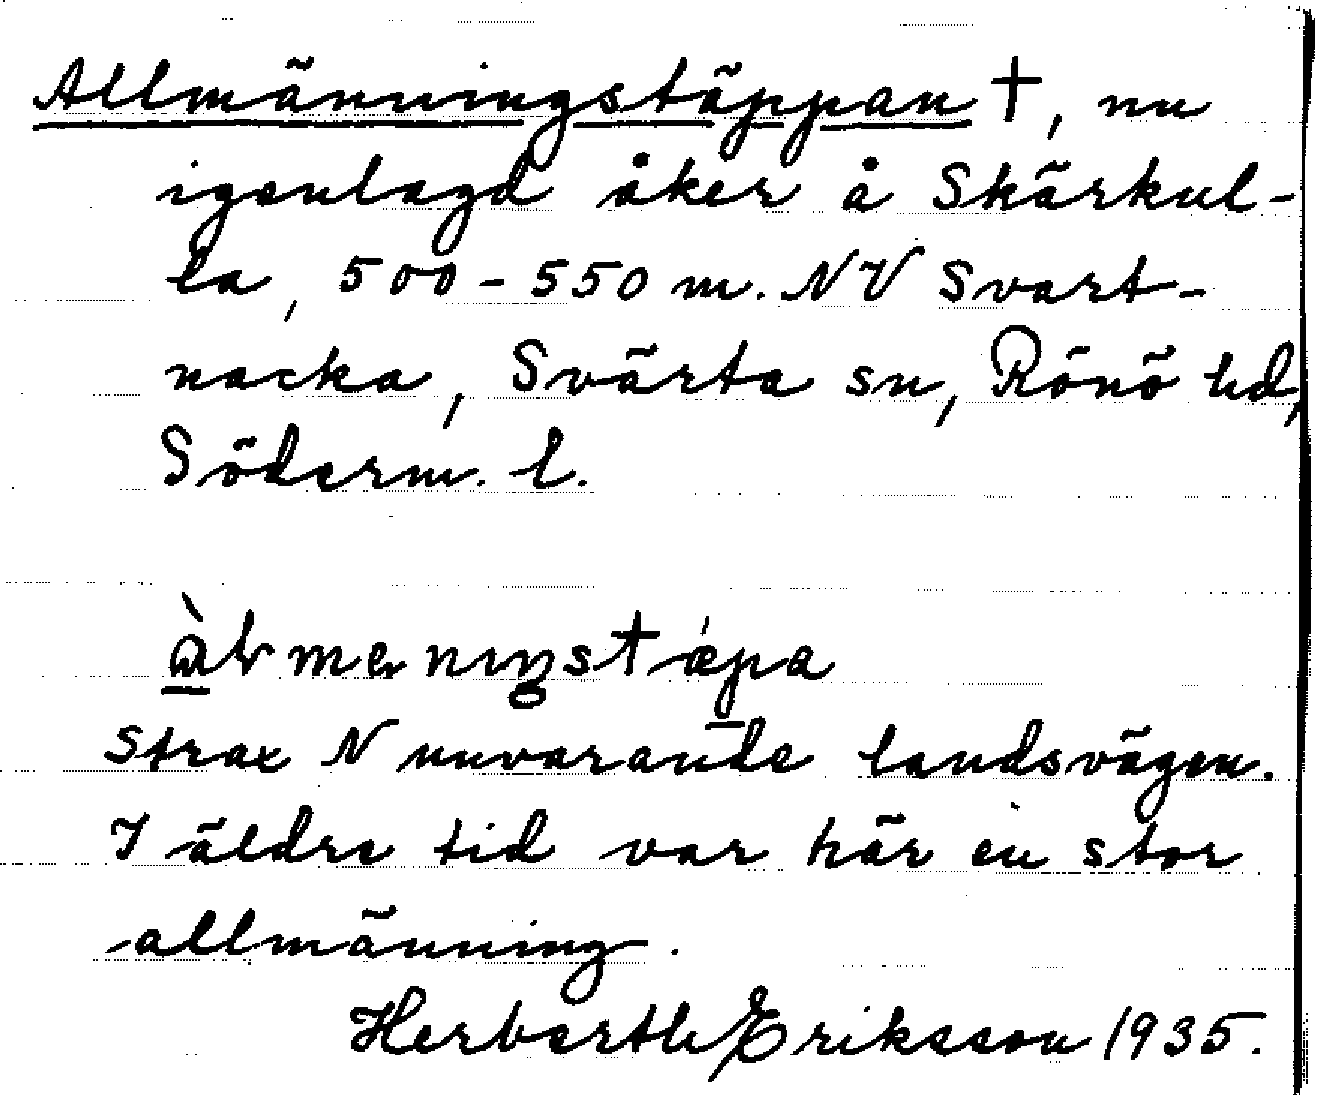 Allmänningstäppan †, nu
igenlagd åker å Skärkul-
la, 500-550 m. NV Svart-
nacka, Svärta sn, Rönö hd,
Söderm. l.
strax N nuvarande landsvägen.
I äldre tid var här en stor
allmänning.
Herberth Eriksson 1935.